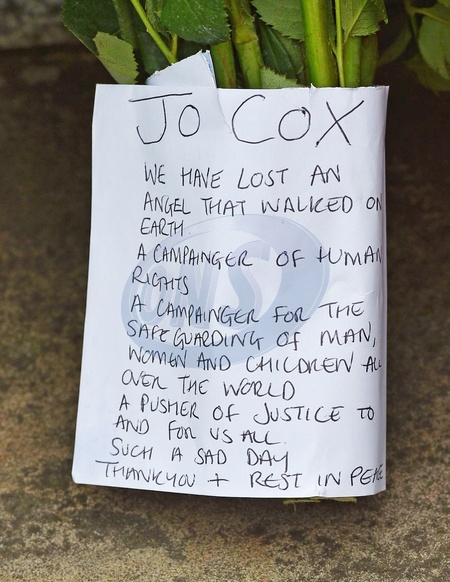 JO COX
WE HAVE LOST AN
ANGEL THAT WALKED ON
EARTH
A CAMPAINGER OF HUMAN
RIGHTS
A CAMPAINGER FOR THE
SAFEGUARDING OF MAN,
WOMEN AND CHILDREN ALL
OVER THE WORLD
A PUSHER OF JUSTICE TO
AND FOR US ALL.
SUCH A SAD DAY
THANKYOU + REST IN PEACE
SWNS